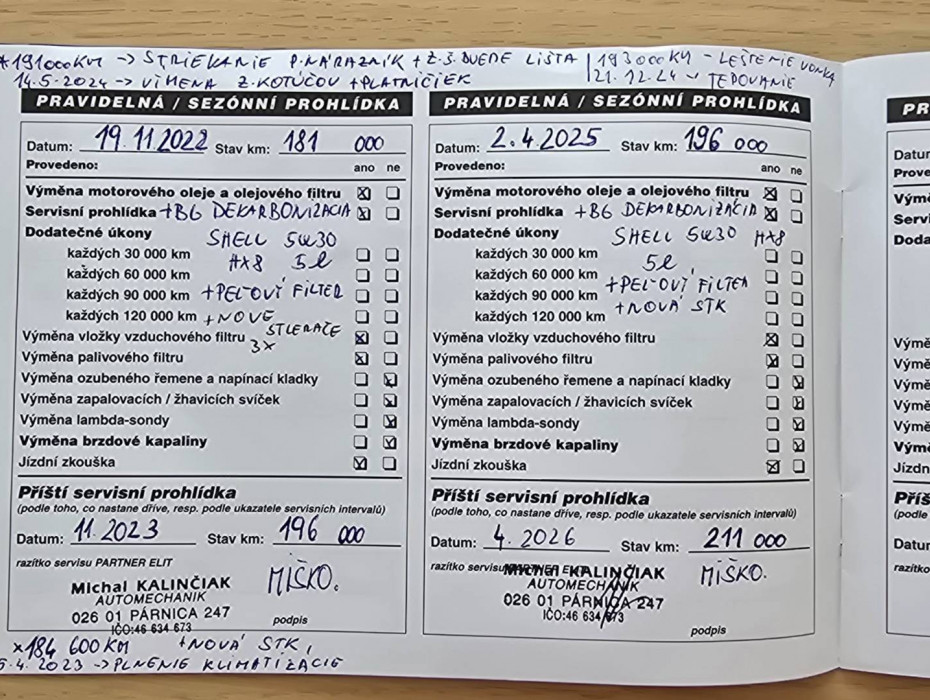 *191000KM -> STRIEKANIE P.NÁRAZNÍK + Ľ.Š. DVERE LIŠTA | 193000KM - LEŠTENIE VONKA
14.5.2024 -> VÝMENA Z.KOTÚČOV + PLATNIČIEK 21.12.24 - TEPOVANIE
PRAVIDELNÁ / SEZÓNNÍ PROHLÍDKA
Datum: 19.11.2022 Stav km: 181 000
Provedeno: ano ne
Výměna motorového oleje a olejového filtru
Servisní prohlídka +BG DEKARBONIZACIA
Dodatečné úkony SHELL 5W30
každých 30 000 km HX8 5l
každých 60 000 km
každých 90 000 km +PEĽOVÝ FILTER
každých 120 000 km +NOVÉ STIERAČE
Výměna vložky vzduchového filtru 3x
Výměna palivového filtru
Výměna ozubeného řemene a napínací kladky
Výměna zapalovacích / žhavicích svíček
Výměna lambda-sondy
Výměna brzdové kapaliny
Jízdní zkouška
Příští servisní prohlídka
(podle toho, co nastane dříve, resp. podle ukazatele servisních intervalů)
Datum: 11.2023 Stav km: 196 000
razítko servisu PARTNER ELIT
Michal KALINČIAK MIŠKO.
AUTOMECHANIK
026 01 PÁRNICA 247
IČO:46 634 673 podpis
*184 600KM +NOVÁ STK,
5.4.2023 -> PLNENIE KLIMATIZÁCIE
PRAVIDELNÁ / SEZÓNNÍ PROHLÍDKA
Datum: 2.4.2025 Stav km: 196 000
Provedeno: ano ne
Výměna motorového oleje a olejového filtru
Servisní prohlídka +BG DEKARBONIZÁCIA
Dodatečné úkony SHELL 5W30 HX8
každých 30 000 km 5l
každých 60 000 km +PEĽOVÝ FILTER
každých 90 000 km +NOVÁ STK
každých 120 000 km
Výměna vložky vzduchového filtru
Výměna palivového filtru
Výměna ozubeného řemene a napínací kladky
Výměna zapalovacích / žhavicích svíček
Výměna lambda-sondy
Výměna brzdové kapaliny
Jízdní zkouška
Příští servisní prohlídka
(podle toho, co nastane dříve, resp. podle ukazatele servisních intervalů)
Datum: 4.2026 Stav km: 211 000
razítko servisu
Michal KALINČIAK MIŠKO.
AUTOMECHANIK
026 01 PÁRNICA 247
IČO:46 634 673
podpis